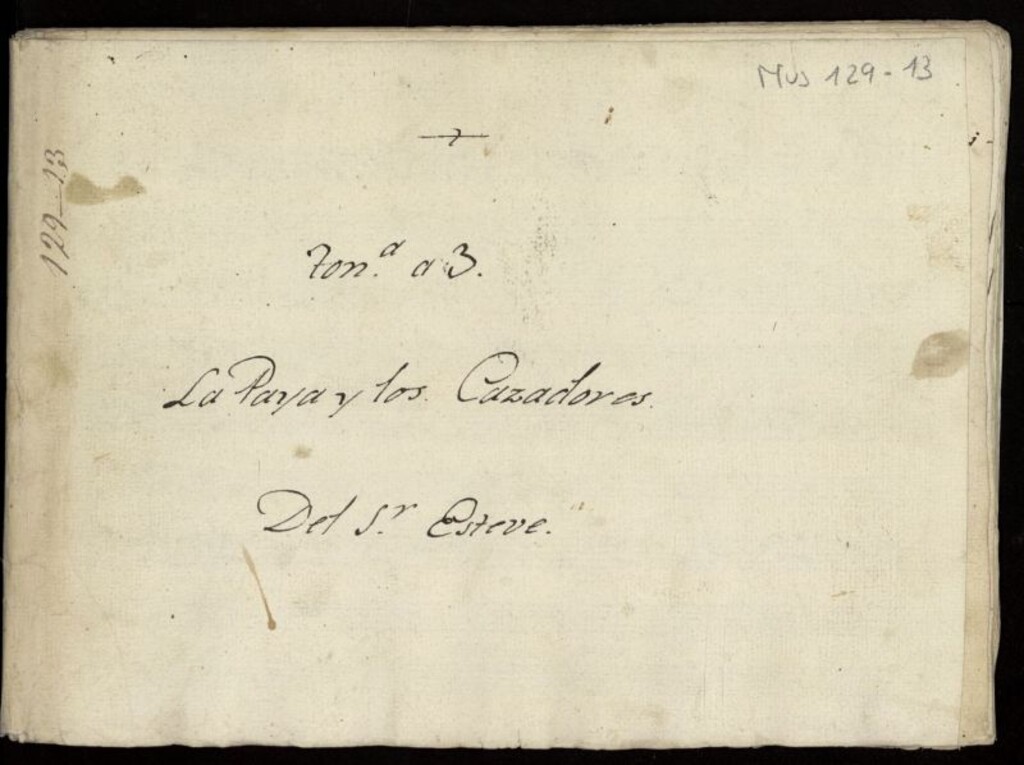 Mus 129-13
129-13
Ton.ª a 3.
La Paya y los Cazadores.
Del S.r Esteve.